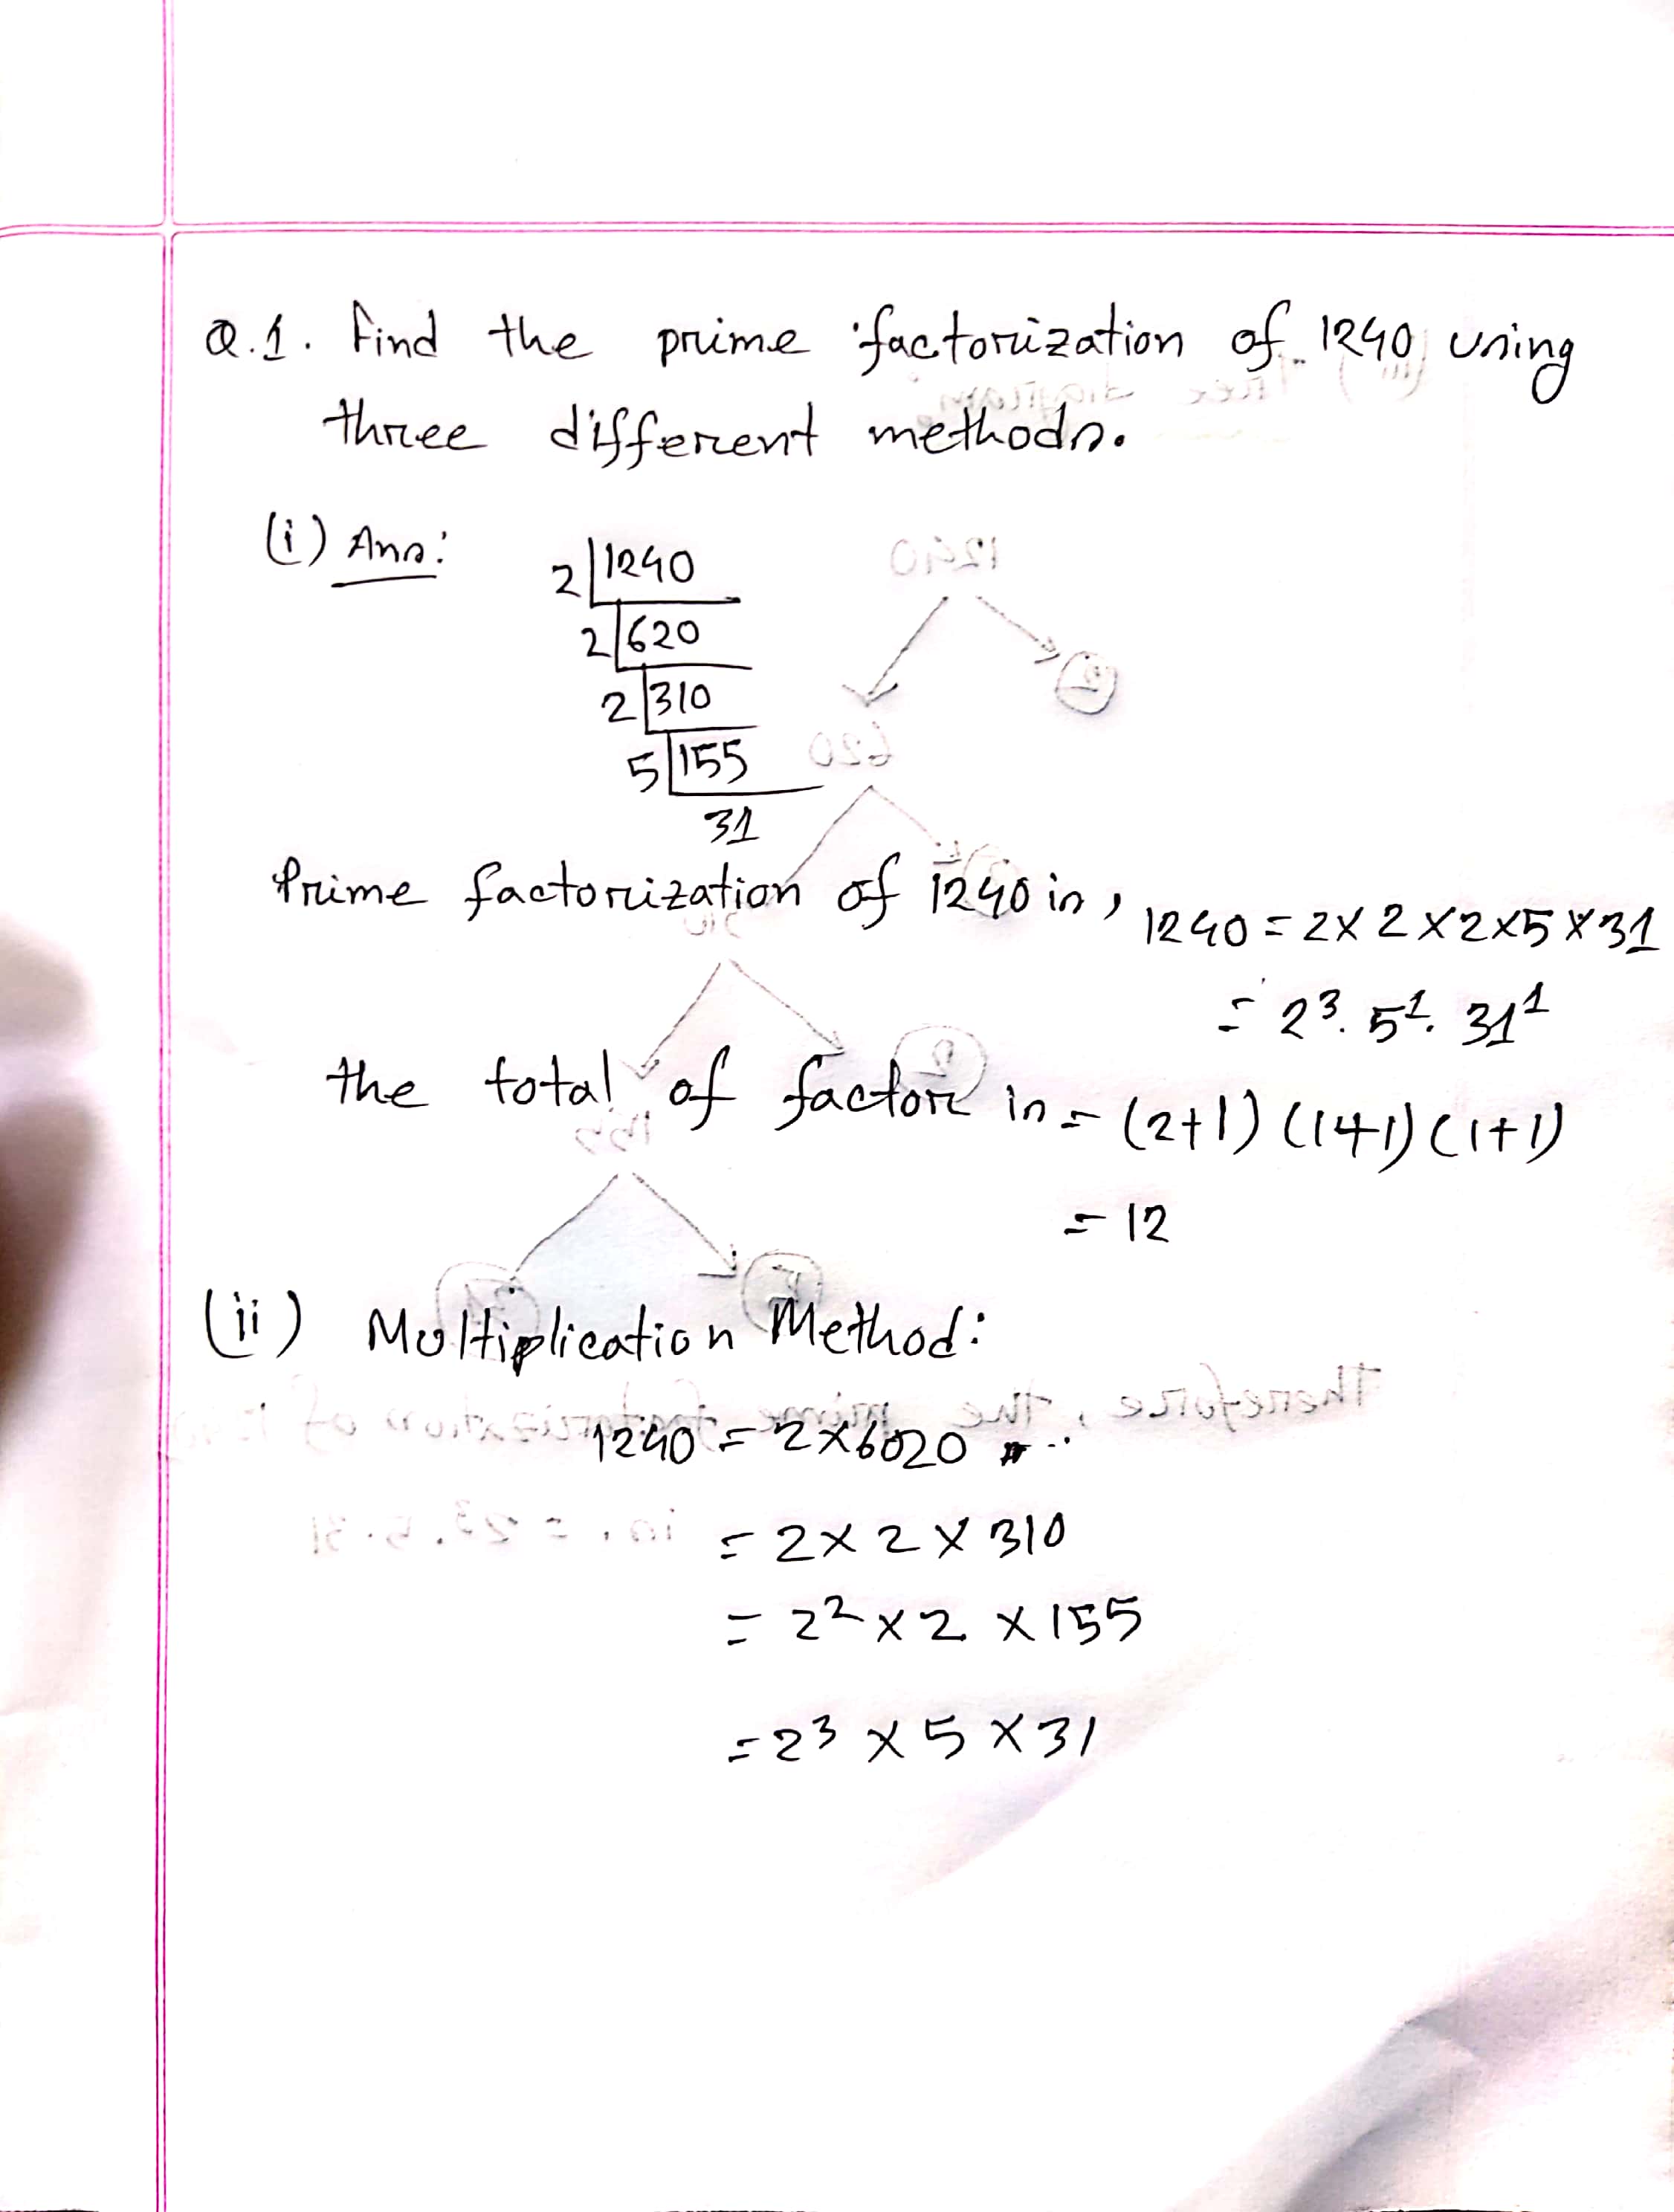 Q.1. Find the prime factorization of 1240 using
three different methods.
(i) Ans:
2|1240
2|620
2|310
5|155
31
Prime factorization of 1240 is, 1240 = 2×2×2×5×31
= 2³. 5¹. 31¹
the total of factor is = (2+1) (1+1) (1+1)
= 12
(ii) Multiplication Method:
1240 = 2×6020
= 2×2×310
= 2² × 2 × 155
= 2³ × 5 × 31